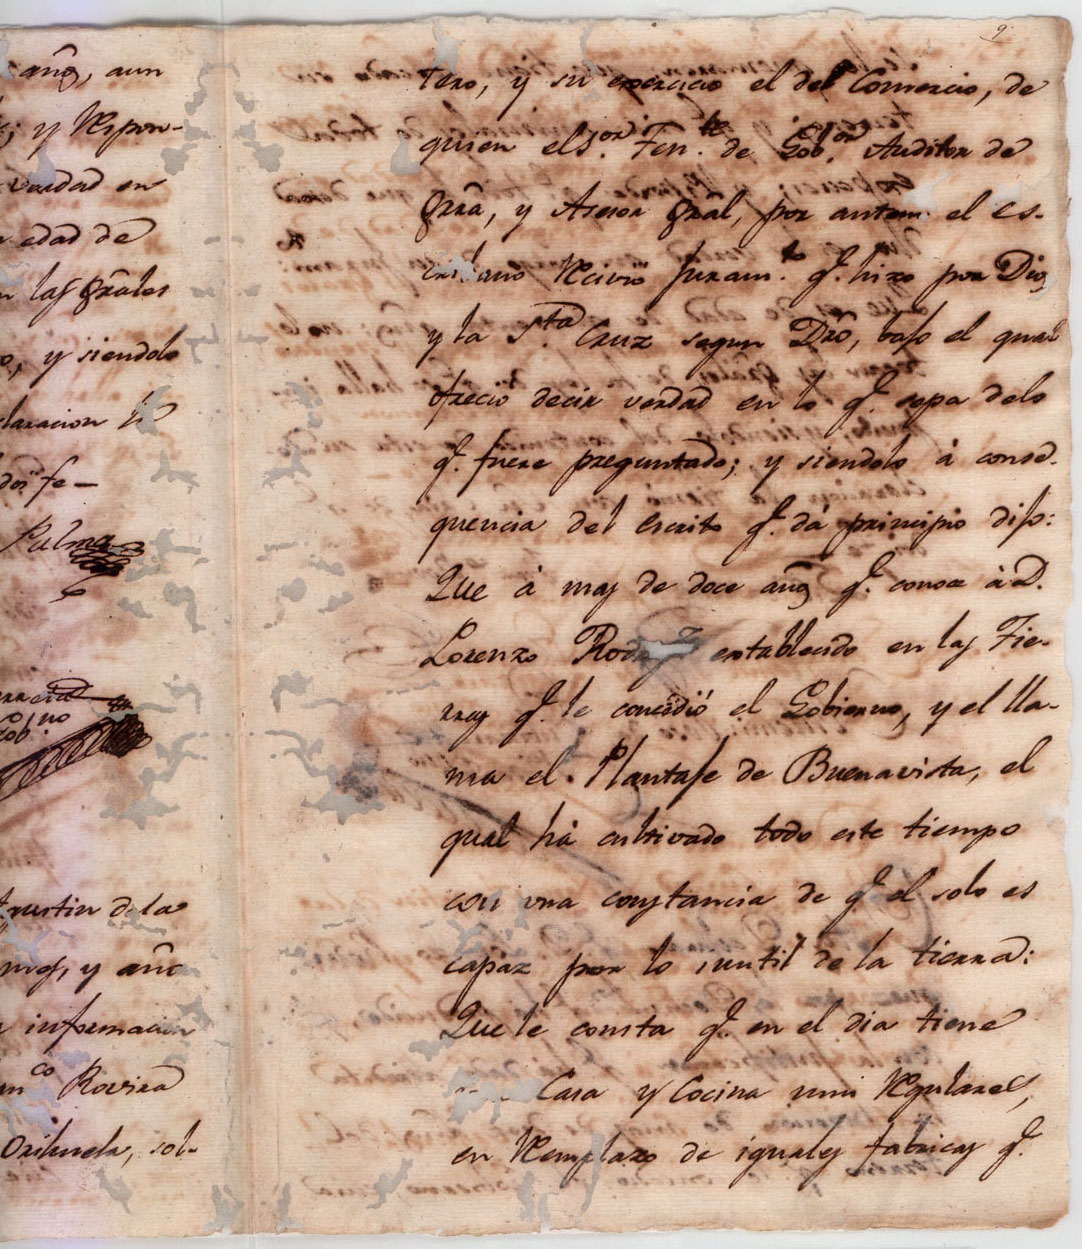 9
años, aun
y Respon-
verdad en
edad de
las grāles
o, y siendolo
laracion
doi fe—
Palma
Gob.no
Agustin de la
mes, y año
informacion
co Rovira
Orihuela, sol-
tero, y su exercicio el del Comercio, de
quien el S.or Ten.te de Gob.or Auditor de
Grrā, y Asesor gral, por antemi el es-
cribano Recivio juram.to q.e hizo por Dios
y la S.ta Cruz segun Dro, bajo el qual
ofrecio decir verdad en lo q.e sepa delo
q.e fuere preguntado; y siendolo á conse-
quencia del escrito q.e dá principio dijo:
Que á mas de doce años q.e conoce á D.
Lorenzo establecido en las Tie-
rras q.e le concedió el Gobierno, y el lla-
ma el Plantage de Buenavista, el
qual há cultivado todo este tiempo
con una constancia de q.e el solo es
capaz por lo inutil de la tierra:
Que le consta q.e en el dia tiene
Casa y Cocina mui Regulares,
en Remplazo de iguales fabricas q.e